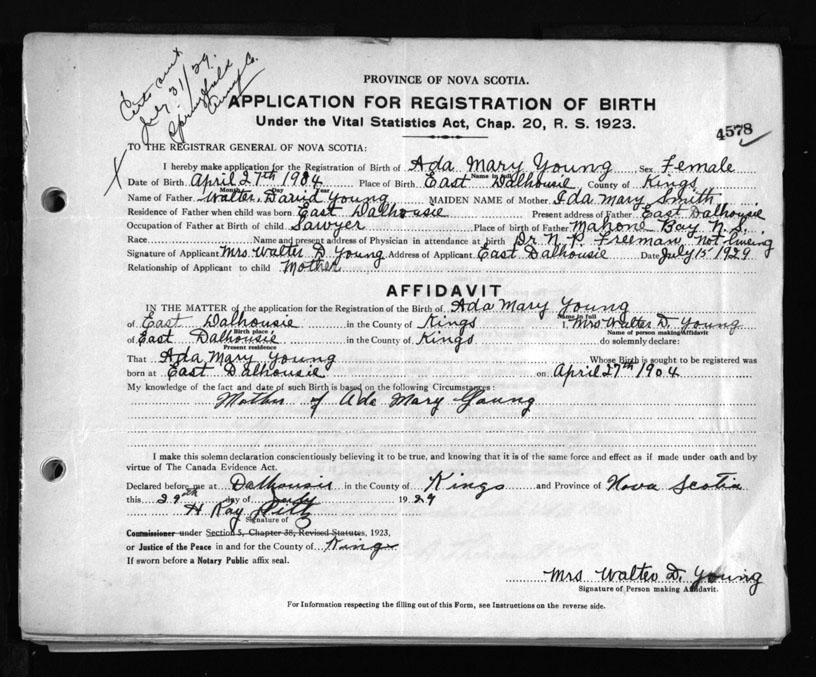 Certs sent
July 31/29
Springfield
Anna Co.
PROVINCE OF NOVA SCOTIA.
APPLICATION FOR REGISTRATION OF BIRTH
Under the Vital Statistics Act, Chap. 20, R. S. 1923.
4578
TO THE REGISTRAR GENERAL OF NOVA SCOTIA:
X
I hereby make application for the Registration of Birth of Ada Mary Young Sex Female
Name in full
Date of Birth April 27th 1904 Place of Birth East Dalhousie, County of Kings
Month Day Year
Name of Father Walter David Young MAIDEN NAME of Mother Ida Mary Smith
Residence of Father when child was born East Dalhousie Present address of Father East Dalhousie
Occupation of Father at Birth of child Sawyer Place of birth of Father Mahone Bay N.S.
Race Name and present address of Physician in attendance at birth Dr N. P. Freeman, Not liveing
Signature of Applicant Mrs. Walter D Young Address of Applicant East Dalhousie Date July 15 1929
Relationship of Applicant to child Mother
AFFIDAVIT
IN THE MATTER of the application for the Registration of the Birth of Ada Mary Young
Name in full
of East Dalhousie in the County of Kings I, Mrs Walter D. Young
Birth place Name of person making Affidavit
of East Dalhousie in the County of Kings do solemnly declare:
Present residence
That Ada Mary Young Whose Birth is sought to be registered was
born at East Dalhousie on April 27th 1904
My knowledge of the fact and date of such Birth is based on the following Circumstances:
Mother of Ada Mary Young
I make this solemn declaration conscientiously believing it to be true, and knowing that it is of the same force and effect as if made under oath and by
virtue of The Canada Evidence Act.
Declared before me at Dalhousie in the County of Kings and Province of Nova Scotia
this 29th day of July 1929
H Ray
Signature of
Commissioner under Section 5, Chapter 38, Revised Statutes, 1923,
or Justice of the Peace in and for the County of Kings
If sworn before a Notary Public affix seal.
Mrs Walter D. Young
Signature of Person making Affidavit.
For Information respecting the filling out of this Form, see Instructions on the reverse side.